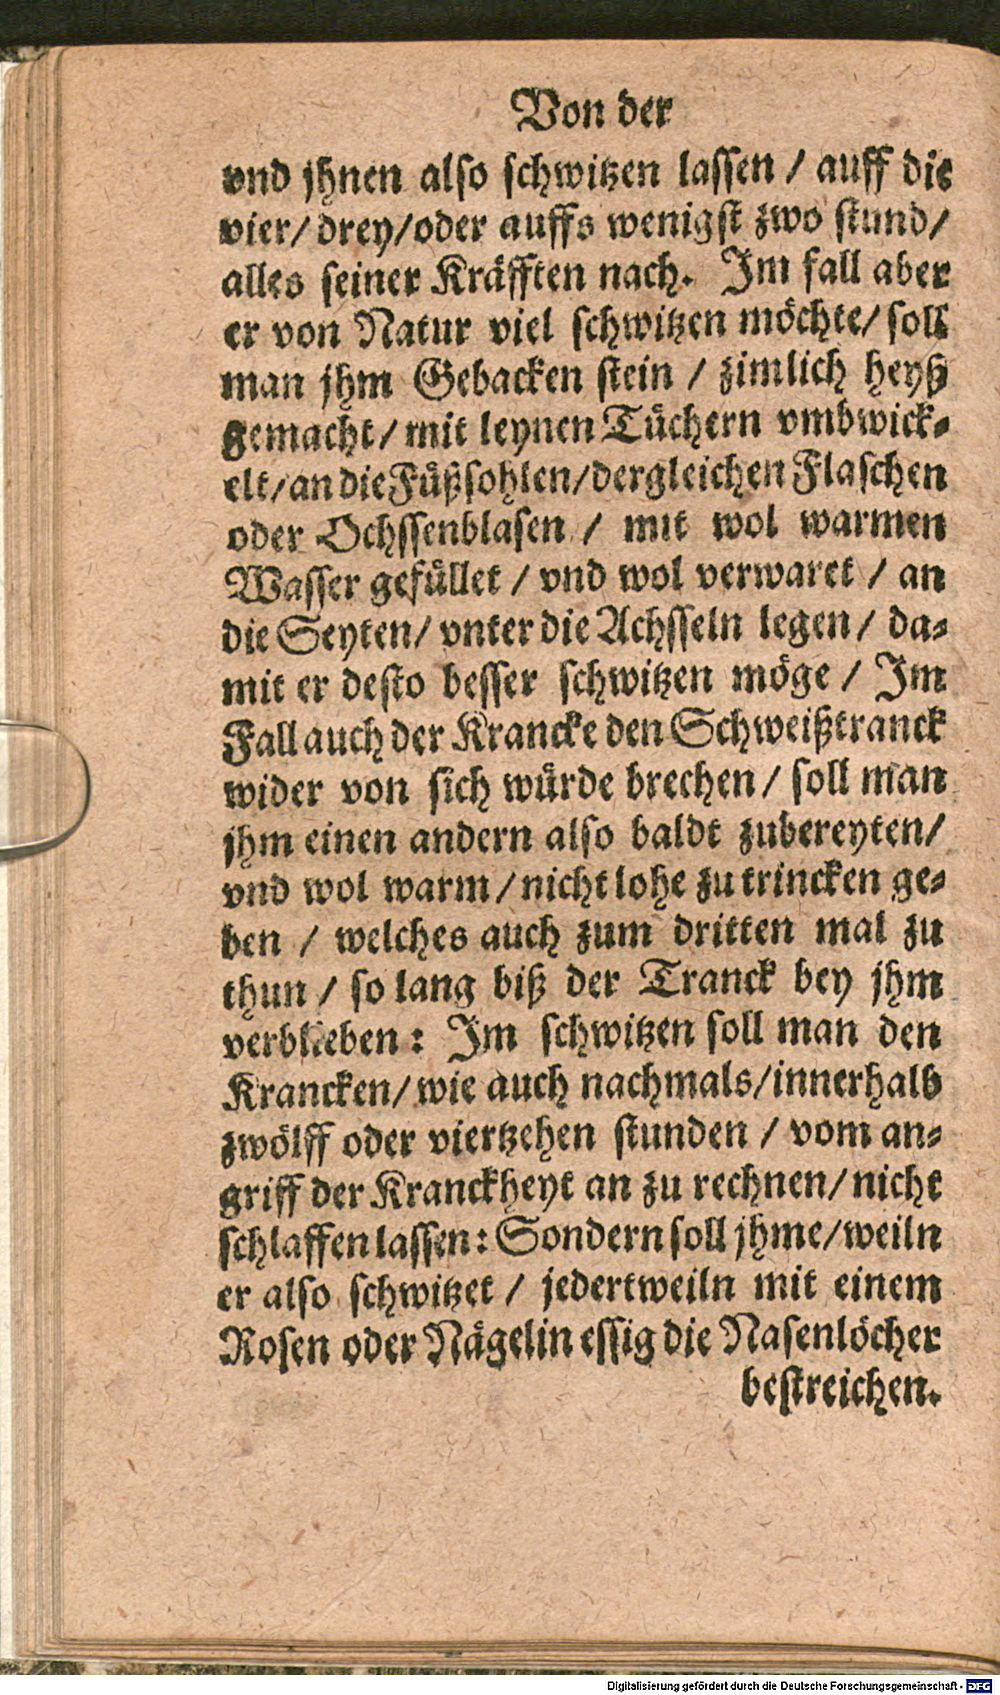 Von der
vnd jhnen also schwitzen lassen / auff die
vier/ drey/oder auffs wenigst zwo stund/
alles seiner Kräfften nach. Im fall aber
er von Natur viel schwitzen möchte/ soll
man jhm Gebacken stein / zimlich heyß
gemacht/ mit leynen Tüchern vmbwick-
elt/an die Füßsohlen/dergleichen Flaschen
oder Ochssenblasen / mit wol warmen
Wasser gefüllet / vnd wol verwaret / an
die Seyten/ vnter die Achsseln legen/ da-
mit er desto besser schwitzen möge / Im
Fall auch der Krancke den Schweißtranck
wider von sich würde brechen/ soll man
jhm einen andern also baldt zubereyten/
vnd wol warm/nicht lohe zu trincken ge-
ben / welches auch zum dritten mal zu
thun / so lang biß der Tranck bey jhm
verblieben: Im schwitzen soll man den
Krancken/ wie auch nachmals/innerhalb
zwölff oder viertzehen stunden / vom an-
griff der Kranckheyt an zu rechnen/ nicht
schlaffen lassen: Sondern soll jhme/weiln
er also schwitzet / jedertweiln mit einem
Rosen oder Nägelin essig die Nasenlöcher
bestreichen.
Digitalisierung gefördert durch die Deutsche Forschungsgemeinschaft - DFG